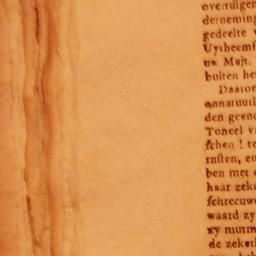 overtuigen
derneming
gedeelte
Uytheemf
uw Majt.
buiten he
Daarom
onnatuurl
den geene
Toneel v
fchen ! te
rnften, en
ben met
haar zeke
fchreeuw
waard zy
zy murm
de zeker